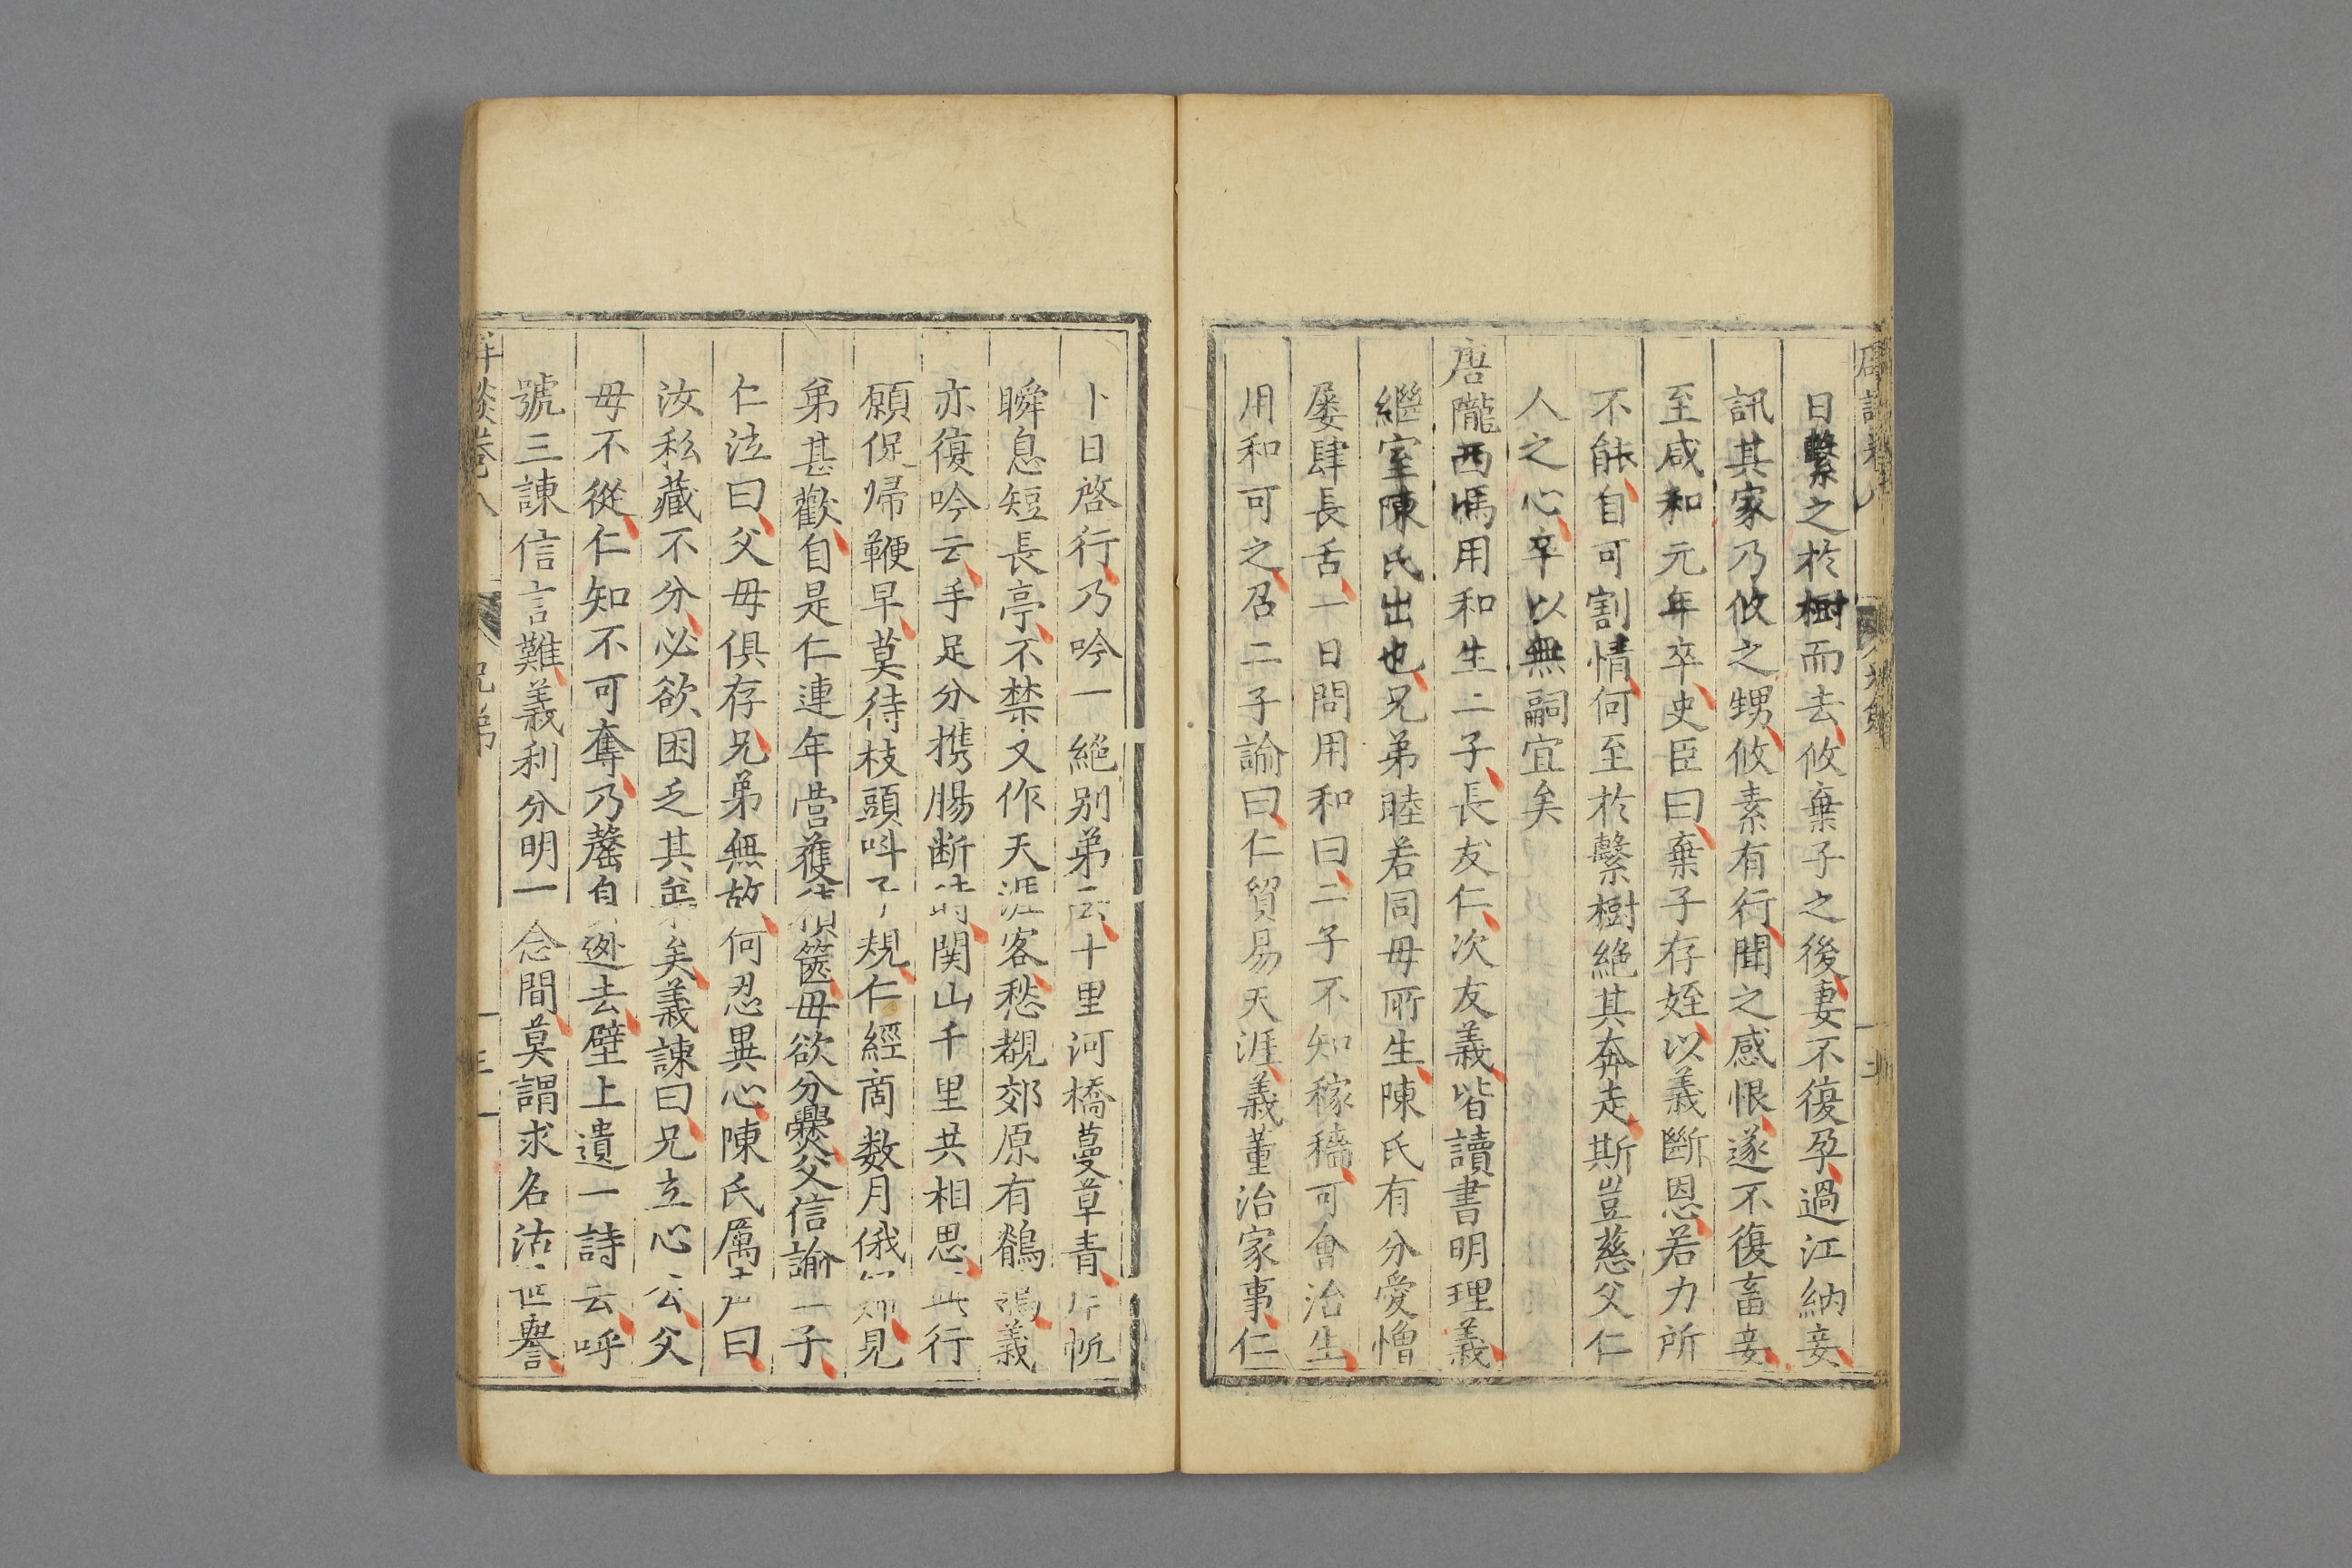 日繫之於樹而去攸棄子之後妻不復孕過江納妾
訊其家乃攸之甥攸素有行聞之感恨遂不復畜妾
至咸和元年卒史臣曰棄子存姪以義斷恩若力所
不能自可割情何至於繫樹絕其奔走斯豈慈父仁
人之心卒以無嗣宜矣
唐隴西馮用和生二子長友仁次友義皆讀書明理義
繼室陳氏出也兄弟睦若同毋所生陳氏有分愛憎
屡肆長舌一日問用和曰二子不知稼穡可會治生
用和可之召二子諭曰仁貿易天涯義董治家事仁
卜日啓行乃吟一絕别弟云十里河橋蔓草青帆
瞬息短長亭不禁又作天涯客愁覩郊原有鶺鴒義
亦復吟云手足分携腸断時関山千里共相思行
願促帰鞭早莫待枝頭呌子規仁經商数月俄見
弟甚歡自是仁連年營獲篋毋欲分爨父信諭二子
仁泣曰父毋俱存兄弟無故何忍異心陳氏厲声曰
汝私藏不分必欲困乏其弟矣義諫曰兄立心公父
毋不從仁知不可奪乃罄自去壁上遺一詩云呼
號三諫信言難義利分明一念間莫謂求名沽世譽